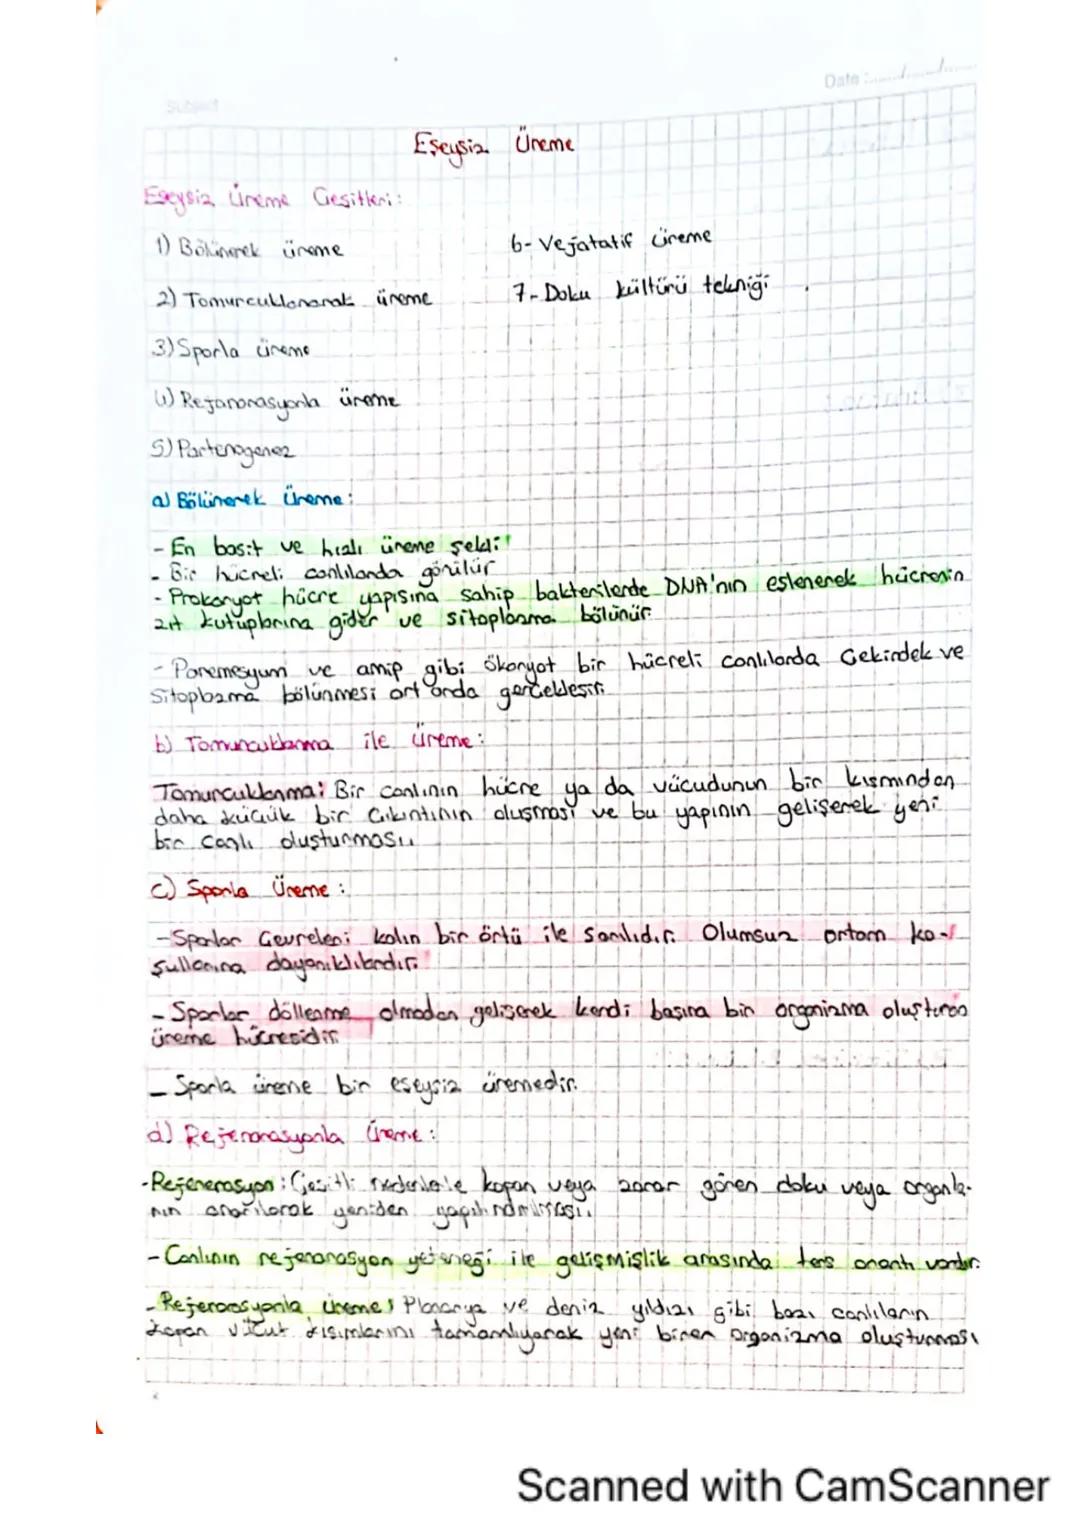 Subject
Date :....../....../......
Eşeysiz Üreme
Eşeysiz Üreme Çeşitleri:
1) Bölünerek üreme
6- Vejatatif üreme
2) Tomurcuklanarak üreme
7- Doku kültürü tekniği
3) Sporla üreme
4) Rejanarasyonla üreme
5) Partenogenez
a) Bölünerek Üreme:
- En basit ve hızlı üreme şekli
- Bir hücreli canlılarda görülür
- Prokaryot hücre yapısına sahip bakterilerde DNA'nın eşlenerek hücrenin
zıt kutuplarına gider ve sitoplazma bölünür.
- Paremesyum ve amip gibi ökaryot bir hücreli canlılarda Çekirdek ve
Sitoplazma bölünmesi art arda gerçekleşir.
b) Tomurcuklanma ile Üreme:
Tomurcuklanma: Bir canlının hücre ya da vücudunun bir kısmından
daha küçük bir çıkıntının oluşması ve bu yapının gelişerek yeni
bir canlı oluşturması.
c) Sporla Üreme:
- Sporlar Çevreleri kalın bir örtü ile sarılıdır. Olumsuz ortam ko-
şullarına dayanıklılardır.
- Sporlar döllenme olmadan gelişerek kendi başına bir organizma oluşturan
üreme hücresidir.
- Sporla üreme bir eşeysiz üremedir.
d) Rejenarasyonla Üreme:
- Rejenerasyon: Çeşitli nedenlerle kopan veya zarar gören doku veya organla-
rın onarılarak yeniden yapılandırılması.
- Canlının rejanarasyon yeteneği ile gelişmişlik arasında ters orantı vardır.
- Rejerarasyonla üreme: Planarya ve deniz yıldızı gibi bazı canlıların
kopan vücut kısımlarını tamamlayarak yeni birer organizma oluşturması
Scanned with CamScanner